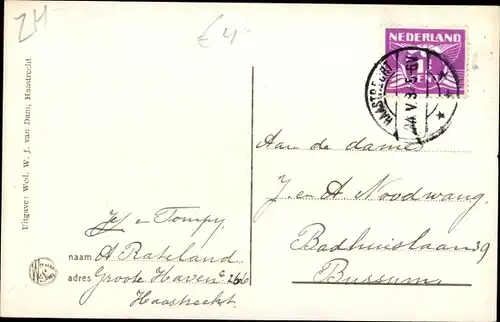 ZH
£ 4
NEDERLAND
HAASTRECHT
Uitgave: Wed. W. J. van Dam, Haastrecht
Aan de dames
J. en A Noodwang.
Badhuislaan 39
Bussum.
Jef en Tompy
naam A Rateland
adres Groote Haven
Haastrecht